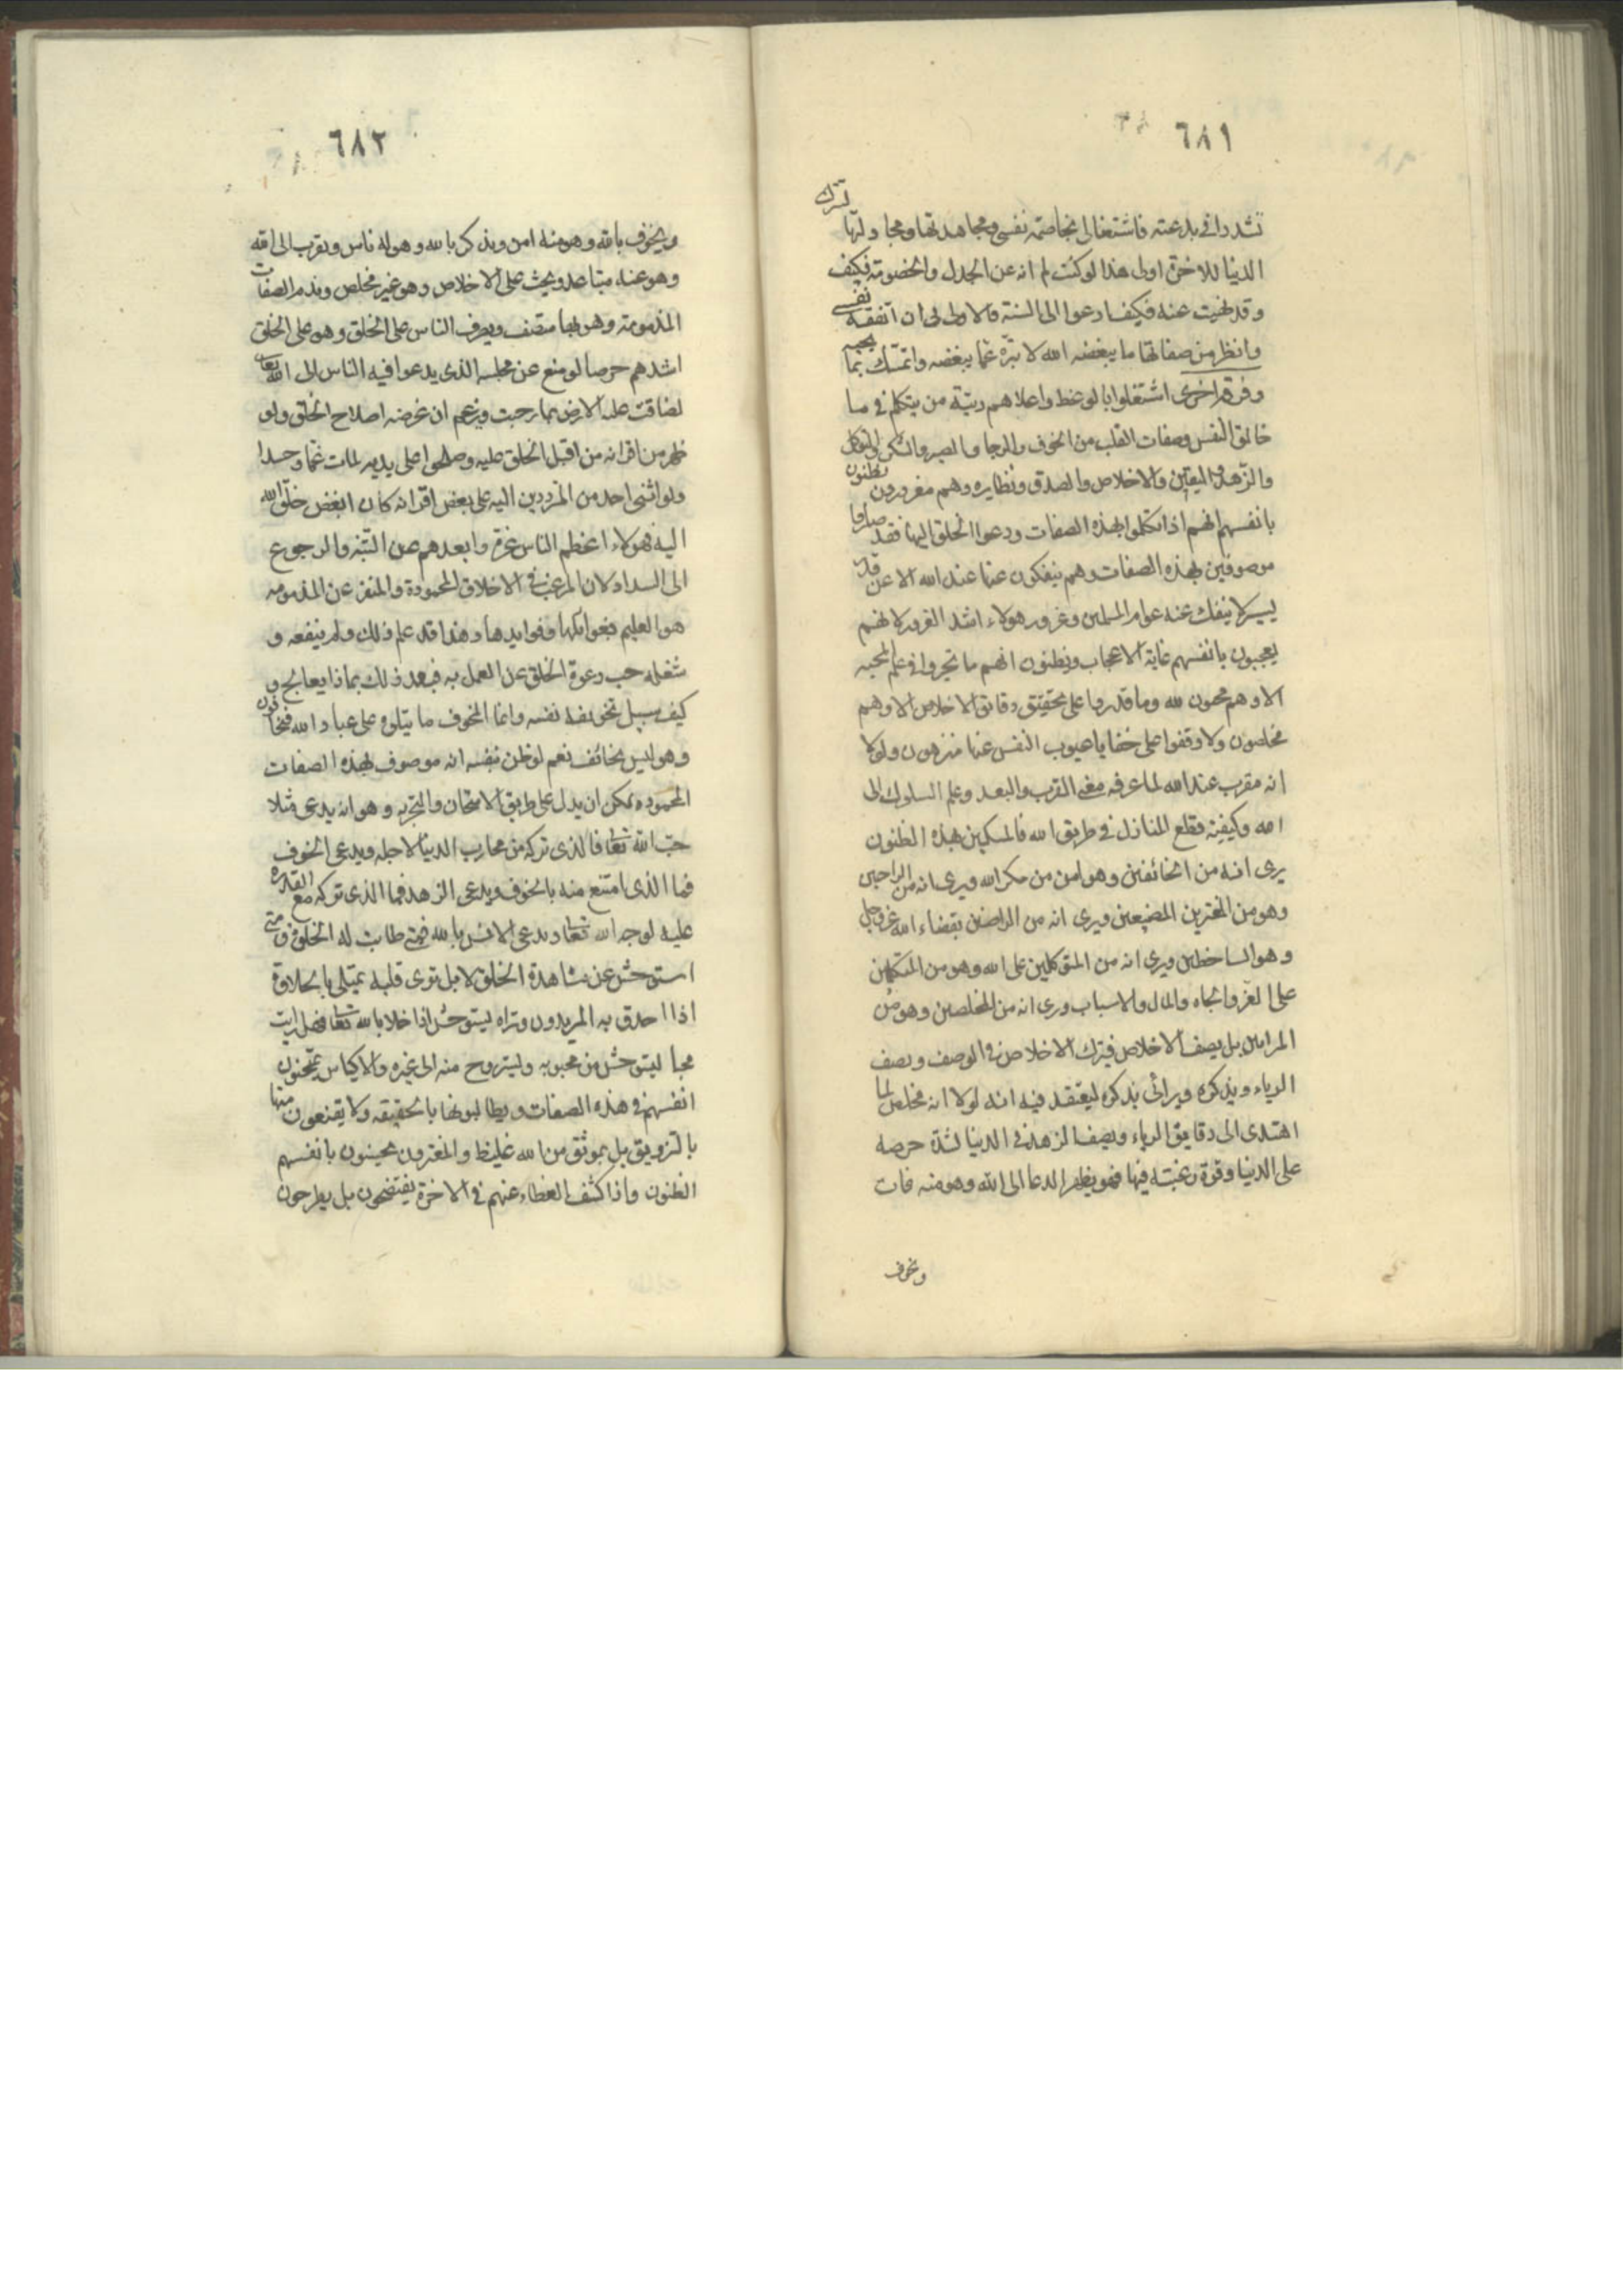 ٦٨١
تشددا في بدعته فاشتغالى بمخاصمة نفسى ومجاهدتها ومجادلتها لترك
الدنيا للاخرة اولى هذا لو كنت لم انه عن الجدل والخصومة فكيف
وقد نهيت عنه فكيف ادعوا الى السنة فالاولى لى ان اتفقد نفسى
وانظر من صفاتها ما يبغضه الله لا تنزه عما يبغضه واتمسك بما يحبه
وفرقة اخرى اشتغلوا بالوعظ واعلاهم رتبة من يتكلم في
النفس وصفات القلب من الخوف والرجا والصبر والشكر والتوكل
والزهد واليقين والاخلاص والصدق ونظايره وهم مغرورون يظنون
بانفسهم انهم اذا تكلموا بهذه الصفات ودعوا الخلق اليها فقد صاروا
موصوفين بهذه الصفات وهم ينفكون عنها عند الله الا عن قدر
يسير لا ينفك عنه عوام المسلمين وغرور هولاء اشد الغرور لانهم
يعجبون بانفسهم غاية الاعجاب ويظنون انهم ما تجروا في علم المحبه
الا وهم محبون لله وما قدروا على تحقيق دقائق الاخلاص الا وهم
مخلصون ولا وقفوا على خفايا عيوب النفس الا وهم عنها منزهون ولولا
انه مقرب عند الله لما عرفه معنى القرب والبعد وعلم السلوك الى
الله وكيفية قطع المنازل في طريق الله فالمسكين بهذه الظنون
يرى انه من الخائفين وهو امن من مكر الله ويرى انه من الراجين
وهو من المغترين المضيعين ويرى انه من الراضين بقضاء الله عز وجل
وهو الساخطين ويرى انه من المتوكلين على الله وهو من المتكلين
على العز والجاه والمال والاسباب ويرى انه من المخلصين وهو من
المرايين بل يصف الاخلاص فيترك الاخلاص في الوصف ويصف
الرياء ويذكره ويرائى بذكره ليعتقد فيه انه لولا انه مخلص لما
اهتدى الى دقايق الرياء ويصف الزهد في الدنيا لشدة حرصه
على الدنيا وقوة رغبته فيها فهو يظهر الدعا الى الله وهو منه فات
ويخوف
٦٨٢
ويخوف بالله وهو منه امن ويذكر بالله وهو له ناس ويقرب الى الله
وهو عنه متباعد ويحث على الاخلاص وهو غير مخلص ويذم الصفات
المذمومة وهو بها متصف ويصرف الناس على الخلق وهو على الخلق
اشدهم حرصا لو منع عن مجلسه الذى يدعوا فيه الناس الى الله تعا
لضاقت عليه الارض بما رحبت ويزعم ان غرضه اصلاح الخلق ولو
ظهر من اقرانه من اقبل الخلق عليه وصلحوا على يديه لمات غما وحسدا
ولو اثنى احد من المترددين اليه على بعض اقرانه كان ابغض خلق الله
اليه فهولاء اعظم الناس غرة وابعدهم عن التنبه والرجوع
الى السداد لان المرغب في الاخلاق المحمودة والمنفر عن المذمومه
هو العليم بغوائلها وفوايدها وهذا قد علم ذلك ولم ينفعه و
شغله حب دعوة الخلق عن العمل به فبعد ذلك بماذا يعالج و
كيف سبيل تخويفه نفسه وانما المخوف ما يتلوه على عباد الله فيخافون
وهو ليس بخائف نعم لو ظن بنفسه انه موصوف بهذه الصفات
المحموده يمكن ان يدل على طريق الامتحان والتجربه وهو انه يدعى مثلا
حب الله تعا فما الذى تركه من محاب الدنيا لاجله ويدعى الخوف
فما الذى امتنع منه بالخوف ويدعى الزهد فما الذى تركه مع القدره
عليه لوجه الله تعا ويدعى الانس بالله فمتى طابت له الخلوة ومتى
استوحش عن مشاهدة الخلق لا بل ترى قلبه يمتلى بالحلاوة
اذا احدق به المريدون وتراه يستوحش اذا خلا بالله تعا فهل رايت
محبا يستوحش من محبوبه ويستروح منه الى غيره والاكياس يمتحنون
انفسهم في هذه الصفات ويطالبونها بالحقيقه ولا يقنعون منها
بالتزويق بل بموثق من الله غليظ والمغترون يحسنون بانفسهم
الظنون واذا كشف الغطاء عنهم في الاخرة يفتضحون بل يطرحون